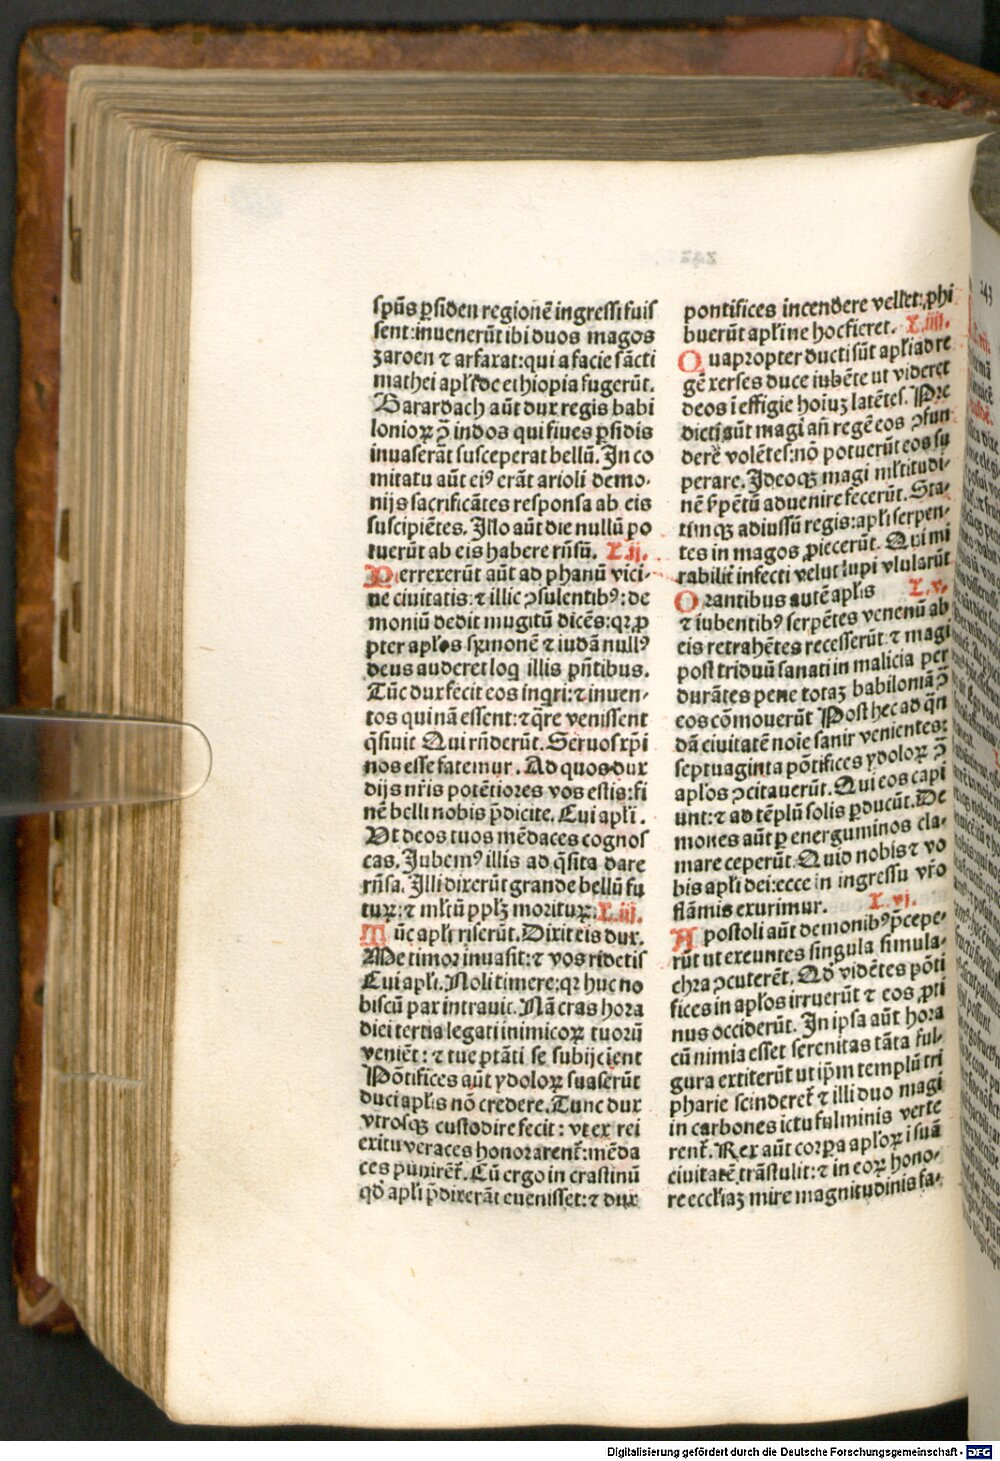 spūs ꝑsiden regionē ingressi fuis
sent: inuenerūt ibi duos magos
zaroen ⁊ arfaxat: qui a facie sācti
mathei apl̄i de ethiopia fugerūt.
Barardach aūt dux regis babi
lonioꝝ ꝯ indos qui fines ꝑsidis
inuaserāt susceperat bellū. In co
mitatu aūt eiꝰ erāt arioli demo-
nijs sacrificātes responsa ab eis
suscipiētes. Illo aūt die nullū po
tuerūt ab eis habere rn̄sū. L. ij.
Perrexerūt aūt ad phanū vici-
ne ciuitatis: ⁊ illic ꝯsulentibꝰ: de
moniū dedit mugitū dicēs: qꝛ ꝓ
pter apl̄os symonē ⁊ iudā nullꝰ
deus auderet loq̄ illis pn̄tibus.
Tūc dux fecit eos inqri: ⁊ inuen-
tos qui nā essent: ⁊ q̄re venissent
q̄siuit Qui rn̄derūt. Seruos xp̄i
nos esse fatemur. Ad quos dux
dijs nr̄is potētiores vos estis: fi
nē belli nobis p̄dicite. Cui apl̄i.
Vt deos tuos mēdaces cognos
cas. Jubemꝰ illis ad q̄sita dare
rn̄sa. Illi dixerūt grande bellū fu
tuꝝ: ⁊ ml̄tū ppl̄ꝫ morituꝝ: L. iij.
Tūc apl̄i riserūt. Dixit eis dux.
Me timor inuasit: ⁊ vos ridetis
Cui apl̄i. Noli timere: qꝛ huc no
biscū pax intrauit. Nā cras hora
diei tertia legati inimicoꝝ tuorū
veniēt: ⁊ tue ptāti se subijcient
Pōtifices aūt ydoloꝝ suaserūt
duci apl̄is nō credere. Tunc dux
vtrosqꝫ custodire fecit: vt ex rei
exitu veraces honorarent̄: mēda
ces punirēt̄. Cū ergo in crastinū
qd̄ apl̄i p̄dixerāt euenisset: ⁊ dux
pontifices incendere vellet: ꝓhi
buerūt apl̄i ne hoc fieret. L. iiij.
Quapropter ducti sūt apl̄i ad re
gē xerses duce iubēte ut videret
deos ī effigie hoīuꝫ latētes. Pre
dicti aūt magi an̄ regē eos ꝯfun
dere volētes: nō potuerūt eos su
perare. Ideoqꝫ magi ml̄titudi-
nē ẜpētū aduenire fecerūt. Sta-
timqꝫ ad iussū regis: apl̄i serpen-
tes in magos ꝓiecerūt. Qui mi
rabilit̄ infecti velut lupi vlularūt
Orantibus autē apl̄is L. v.
⁊ iubentibꝰ serpētes venenū ab
eis retrahētes recesserūt: ⁊ magi
post triduū sanati in malicia per
durātes pene totaꝫ babiloniā ꝯ
eos cōmouerūt Post hec ad qn̄
dā ciuitatē noīe sanir venientes:
septuaginta pōtifices ydoloꝝ ꝯ
apl̄os ꝯcitauerūt. Qui eos capi
unt: ⁊ ad tēplū solis ꝑducūt. De
mones aūt ꝑ energuminos cla-
mare ceperūt. Quid nobis ⁊ vo
bis apl̄i dei: ecce in ingressu vr̄o
flāmis exurimur. L. vj.
Apostoli aūt demonibꝰ p̄cepe-
rūt ut exeuntes singula simula-
chra ꝯcuterēt. Qd̄ vidētes pōti
fices in apl̄os irruerūt ⁊ eos ꝓti
nus occiderūt. In ipsa aūt hora
cū nimia esset serenitas tāta ful-
gura extiterūt ut ip̄m templū tri
pharie scinderet̄ ⁊ illi duo magi
in carbones ictu fulminis verte
rent̄. Rex aūt corꝑa apl̄oꝝ ī suā
ciuitatē trāstulit: ⁊ in eoꝝ hono-
re eccl̄iaꝫ mire magnitudinis fa-
243
Digitalisierung gefördert durch die Deutsche Forschungsgemeinschaft - DFG